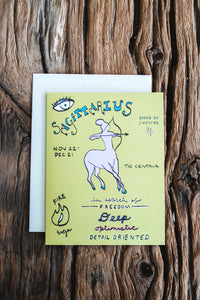 SAGITTARIUS
NOV 22-
DEC 21
THE CENTAUR
FIRE
in search of
FREEDOM
Deep
optimistic
DETAIL ORIENTED